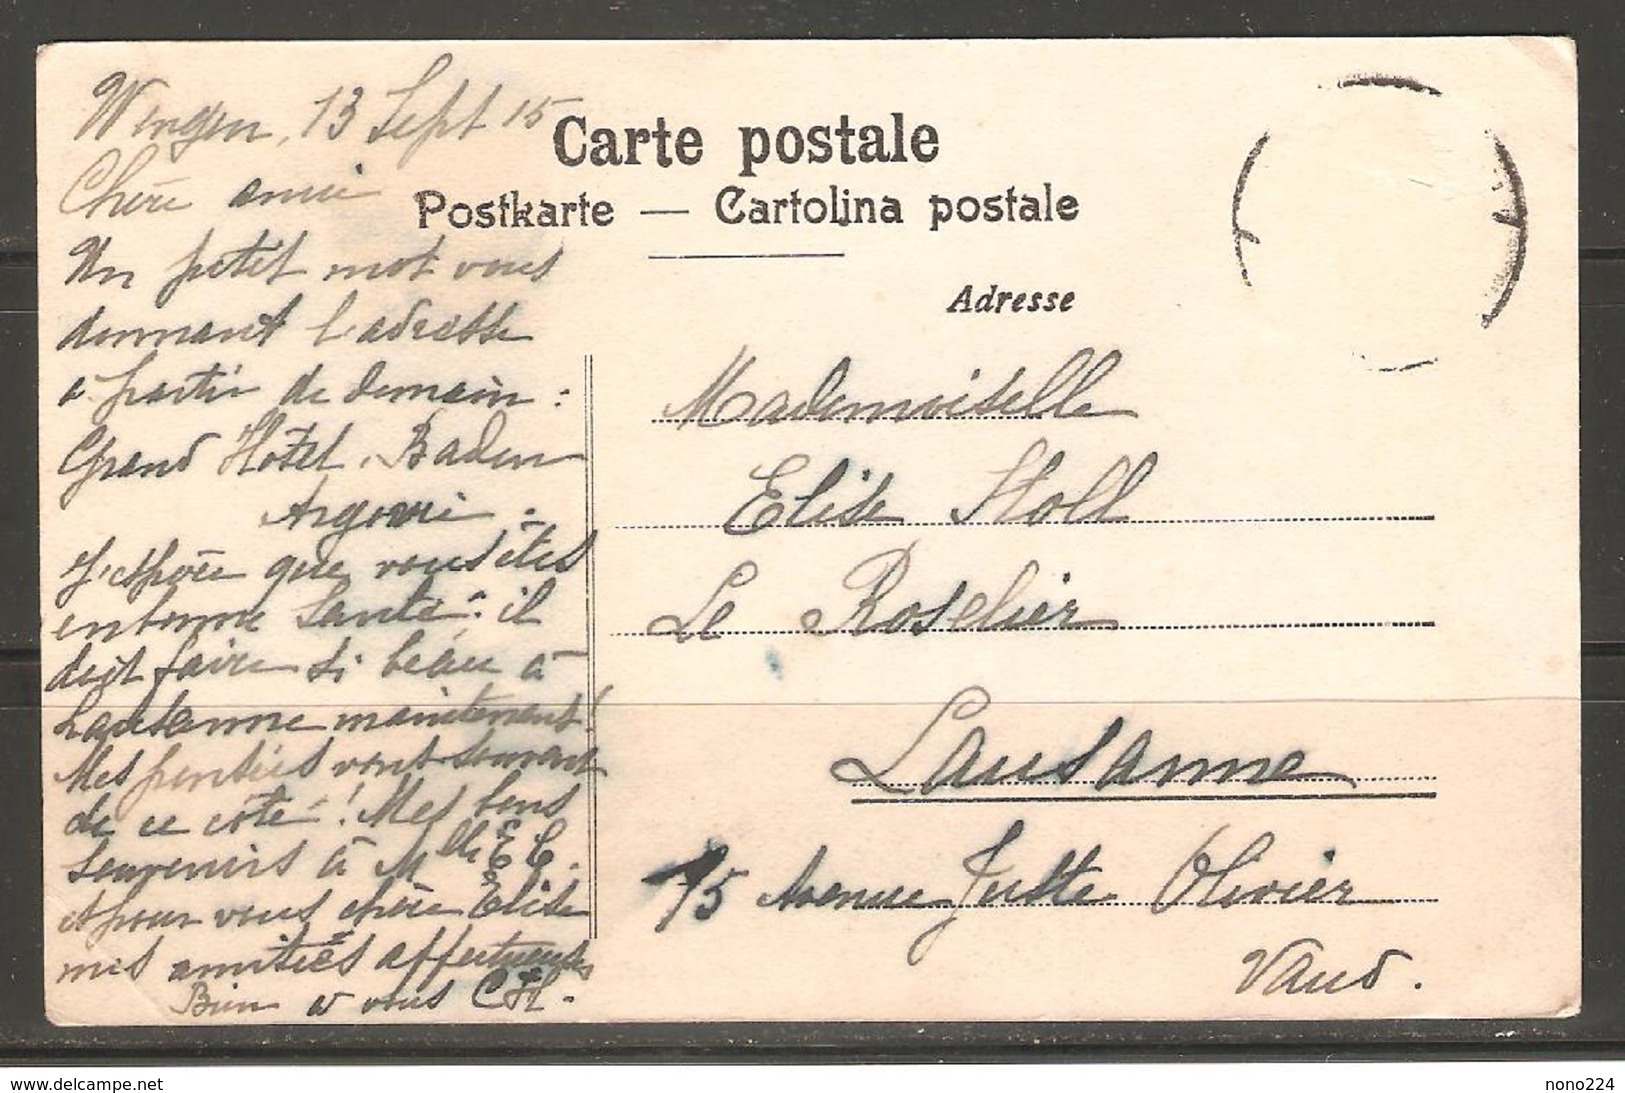 Wengen, 13 Sept 15
Chère amie
Un petit mot vous
donnant l'adresse
a partir de demain :
Grand Hôtel. Baden
Argovie.
J'espère que vous êtes
en bonne santé : il
doit faire si beau à
Lausanne maintenant!
Mes pensées vont souvent
de ce côté ! Mes bons
souvenirs à Mlle E C.
et pour vous chère Elise
mes amitiés affectueuses
Bien a vous
Carte postale
Postkarte — Cartolina postale
Adresse
Mademoiselle
Elise Stoll
Le Roselier
Lausanne
15 Avenue Juste Olivier
Vaud.
www.delcampe.net
nono224